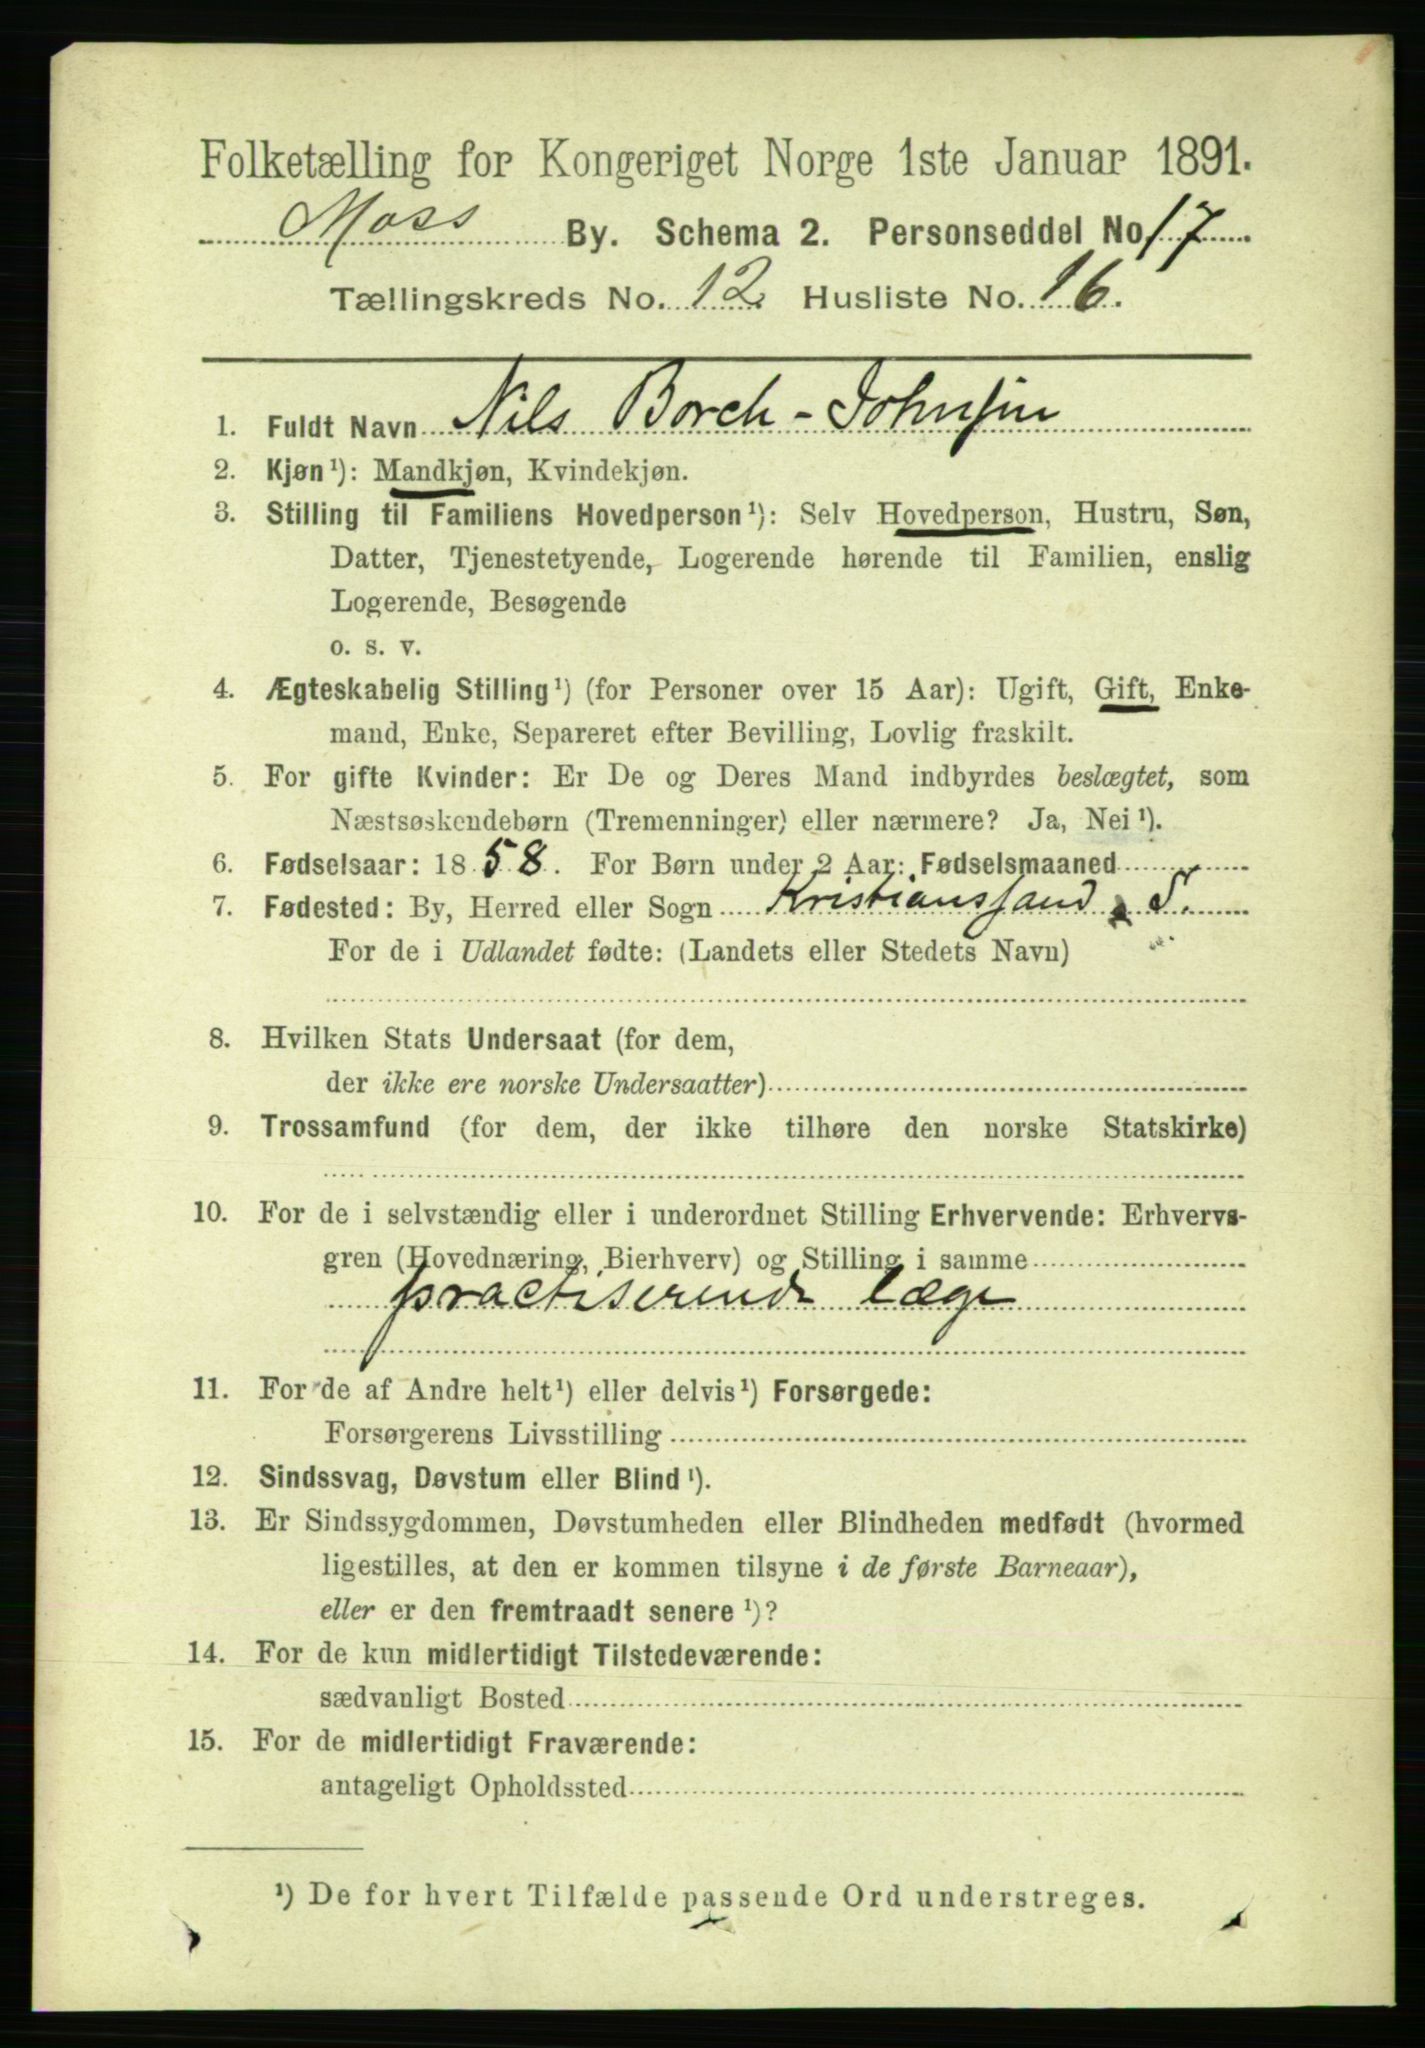 Folketælling for Kongeriget Norge 1ste Januar 1891.
Moss By. Schema 2. Personseddel No. 17
Tællingskreds No. 12. Husliste No. 16.
1. Fuldt Navn Nils Borch-Johnsen
2. Kjøn¹): Mandkjøn, Kvindekjøn.
3. Stilling til Familiens Hovedperson¹): Selv Hovedperson, Hustru, Søn,
Datter, Tjenestetyende, Logerende hørende til Familien, enslig
Logerende, Besøgende
o. s. v.
4. Ægteskabelig Stilling¹) (for Personer over 15 Aar): Ugift, Gift, Enke-
mand, Enke, Separeret efter Bevilling, Lovlig fraskilt.
5. For gifte Kvinder: Er De og Deres Mand indbyrdes beslægtet, som
Næstsøskendebørn (Tremenninger) eller nærmere? Ja, Nei¹).
6. Fødselsaar: 1858. For Børn under 2 Aar: Fødselsmaaned
7. Fødested: By, Herred eller Sogn Kristianssand S.
For de i Udlandet fødte: (Landets eller Stedets Navn)
8. Hvilken Stats Undersaat (for dem,
der ikke ere norske Undersaatter)
9. Trossamfund (for dem, der ikke tilhøre den norske Statskirke)
10. For de i selvstændig eller i underordnet Stilling Erhvervende: Erhvervs-
gren (Hovednæring, Bierhverv) og Stilling i samme
practiserende læge
11. For de af Andre helt¹) eller delvis¹) Forsørgede:
Forsørgerens Livsstilling
12. Sindssvag, Døvstum eller Blind¹).
13. Er Sindssygdommen, Døvstumheden eller Blindheden medfødt (hvormed
ligestilles, at den er kommen tilsyne i de første Barneaar),
eller er den fremtraadt senere¹)?
14. For de kun midlertidigt Tilstedeværende:
sædvanligt Bosted
15. For de midlertidigt Fraværende:
antageligt Opholdssted
¹) De for hvert Tilfælde passende Ord understreges.